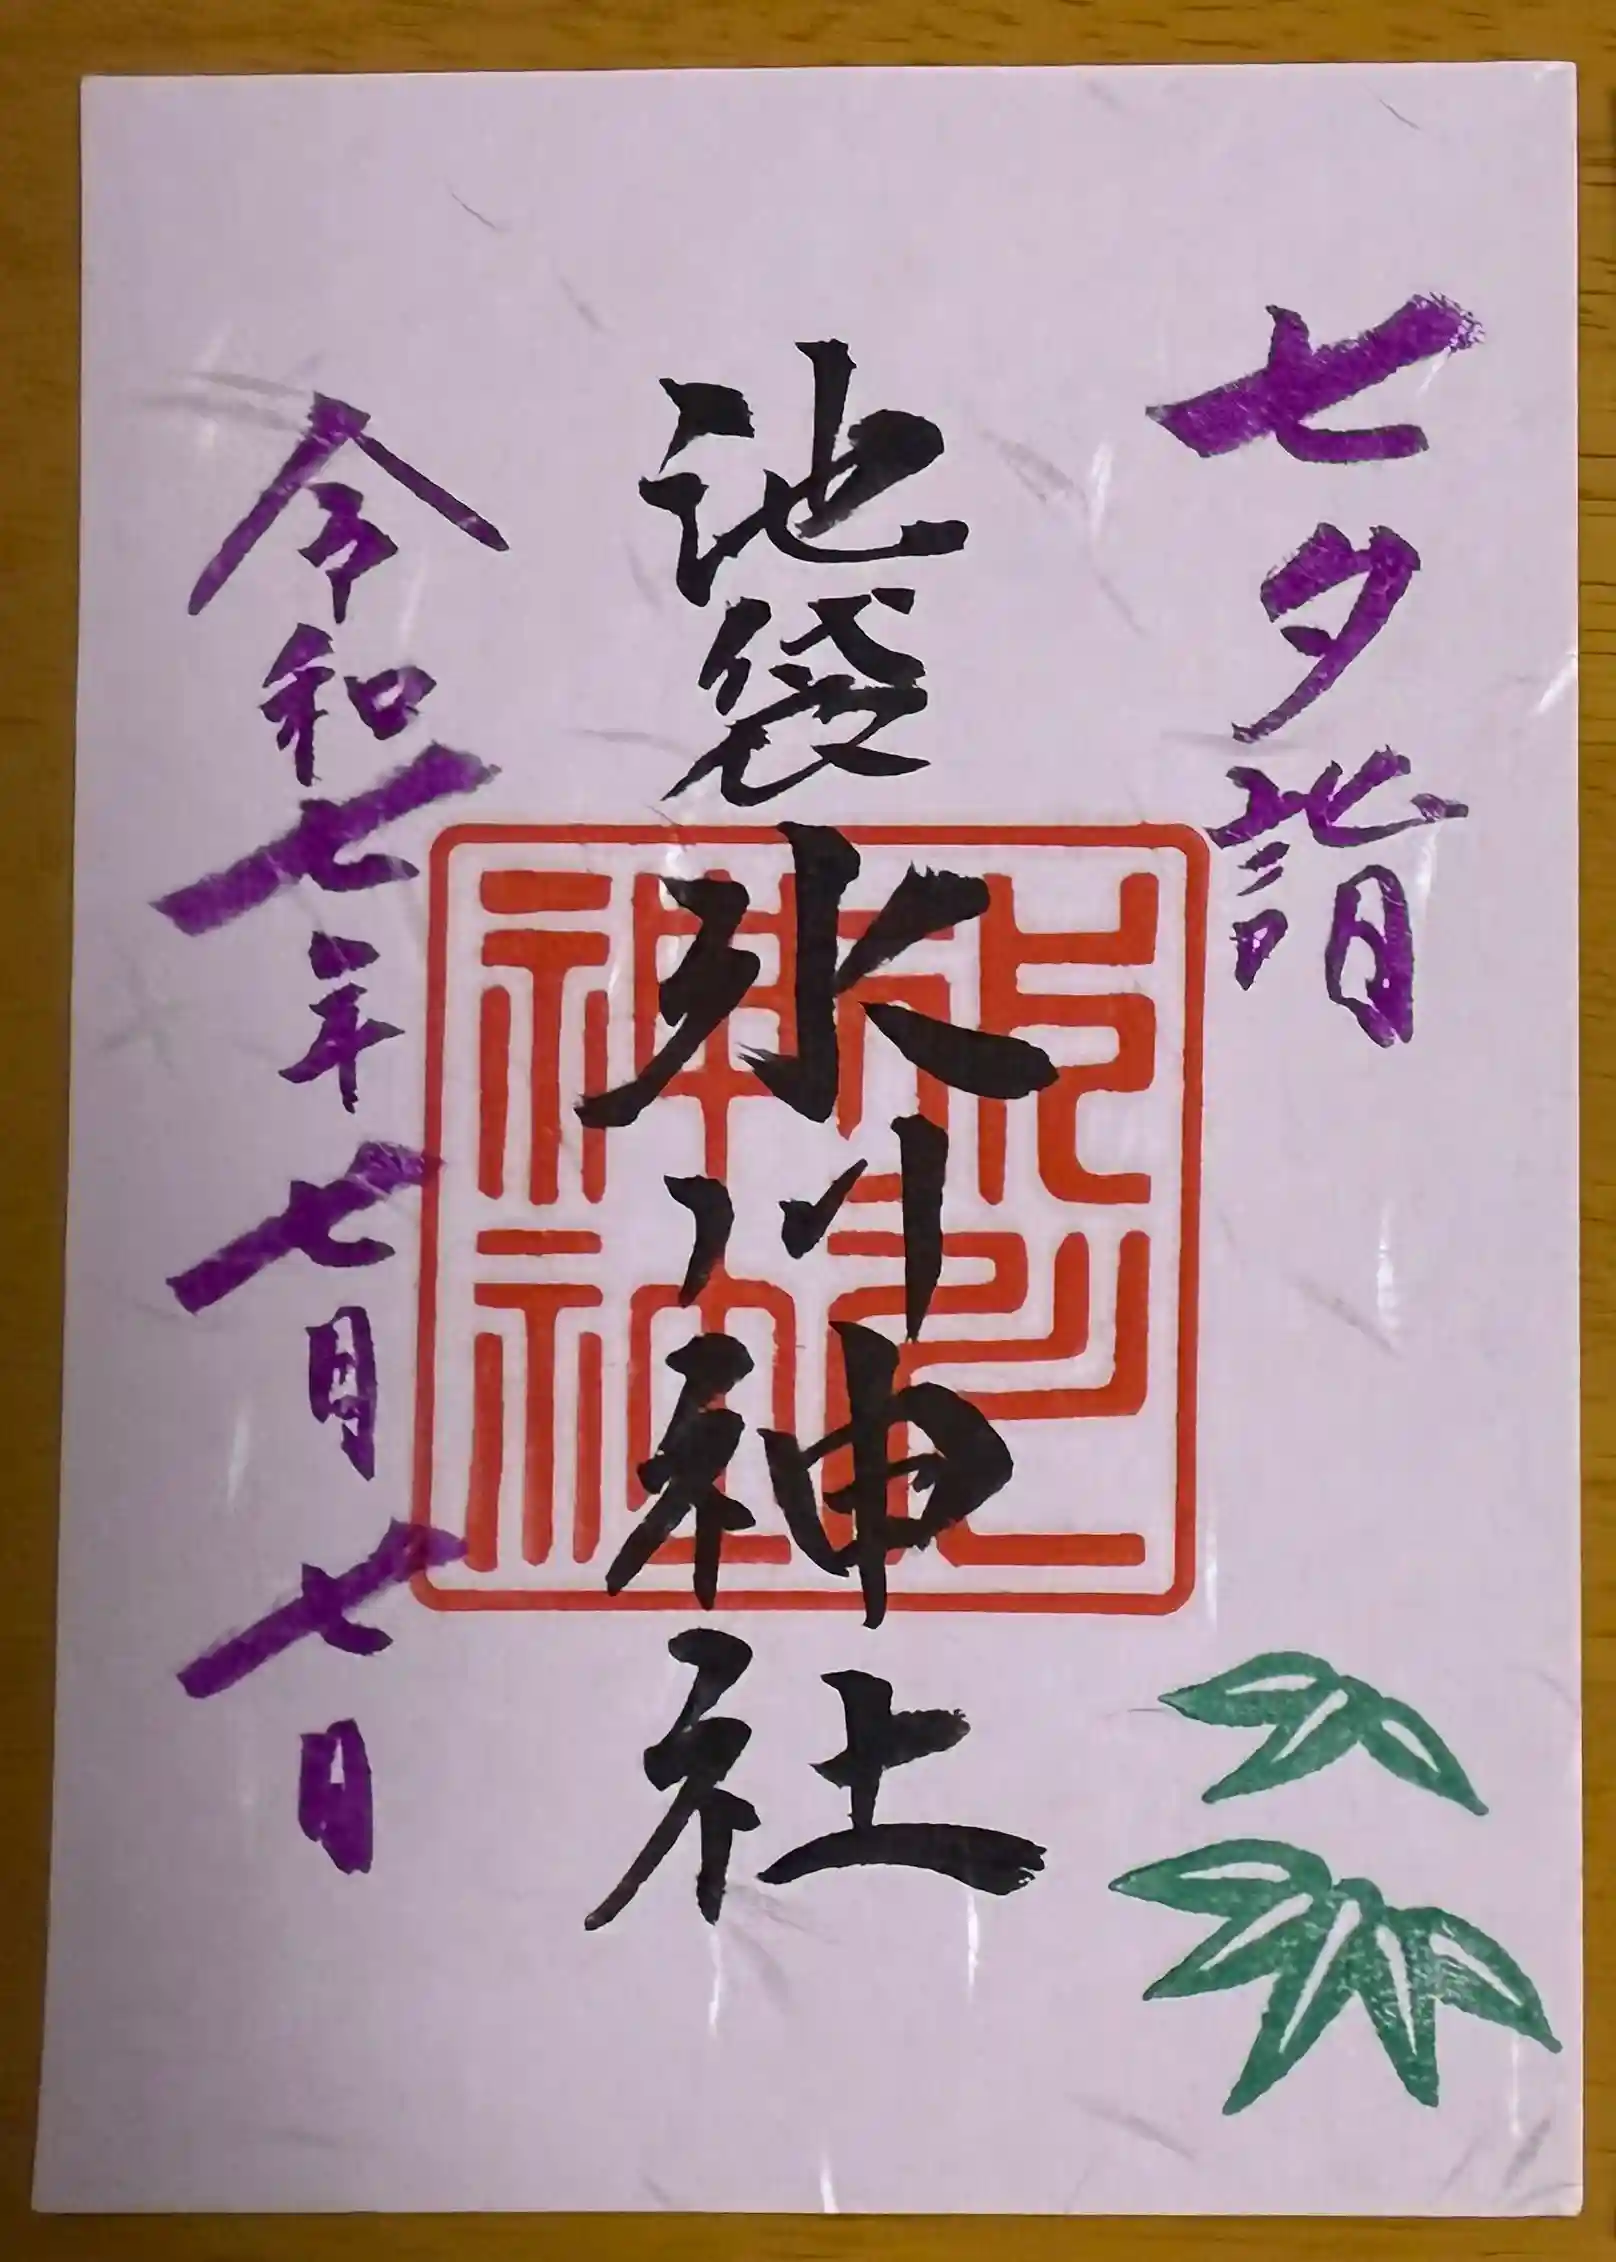 七夕詣
池袋氷川神社
氷川神社
令和七年七月七日